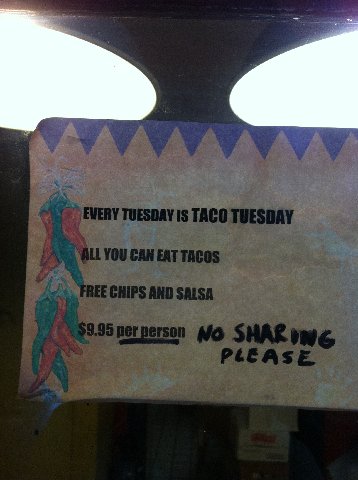 EVERY TUESDAY IS TACO TUESDAY
ALL YOU CAN EAT TACOS
FREE CHIPS AND SALSA
$9.95 per person NO SHARING
PLEASE